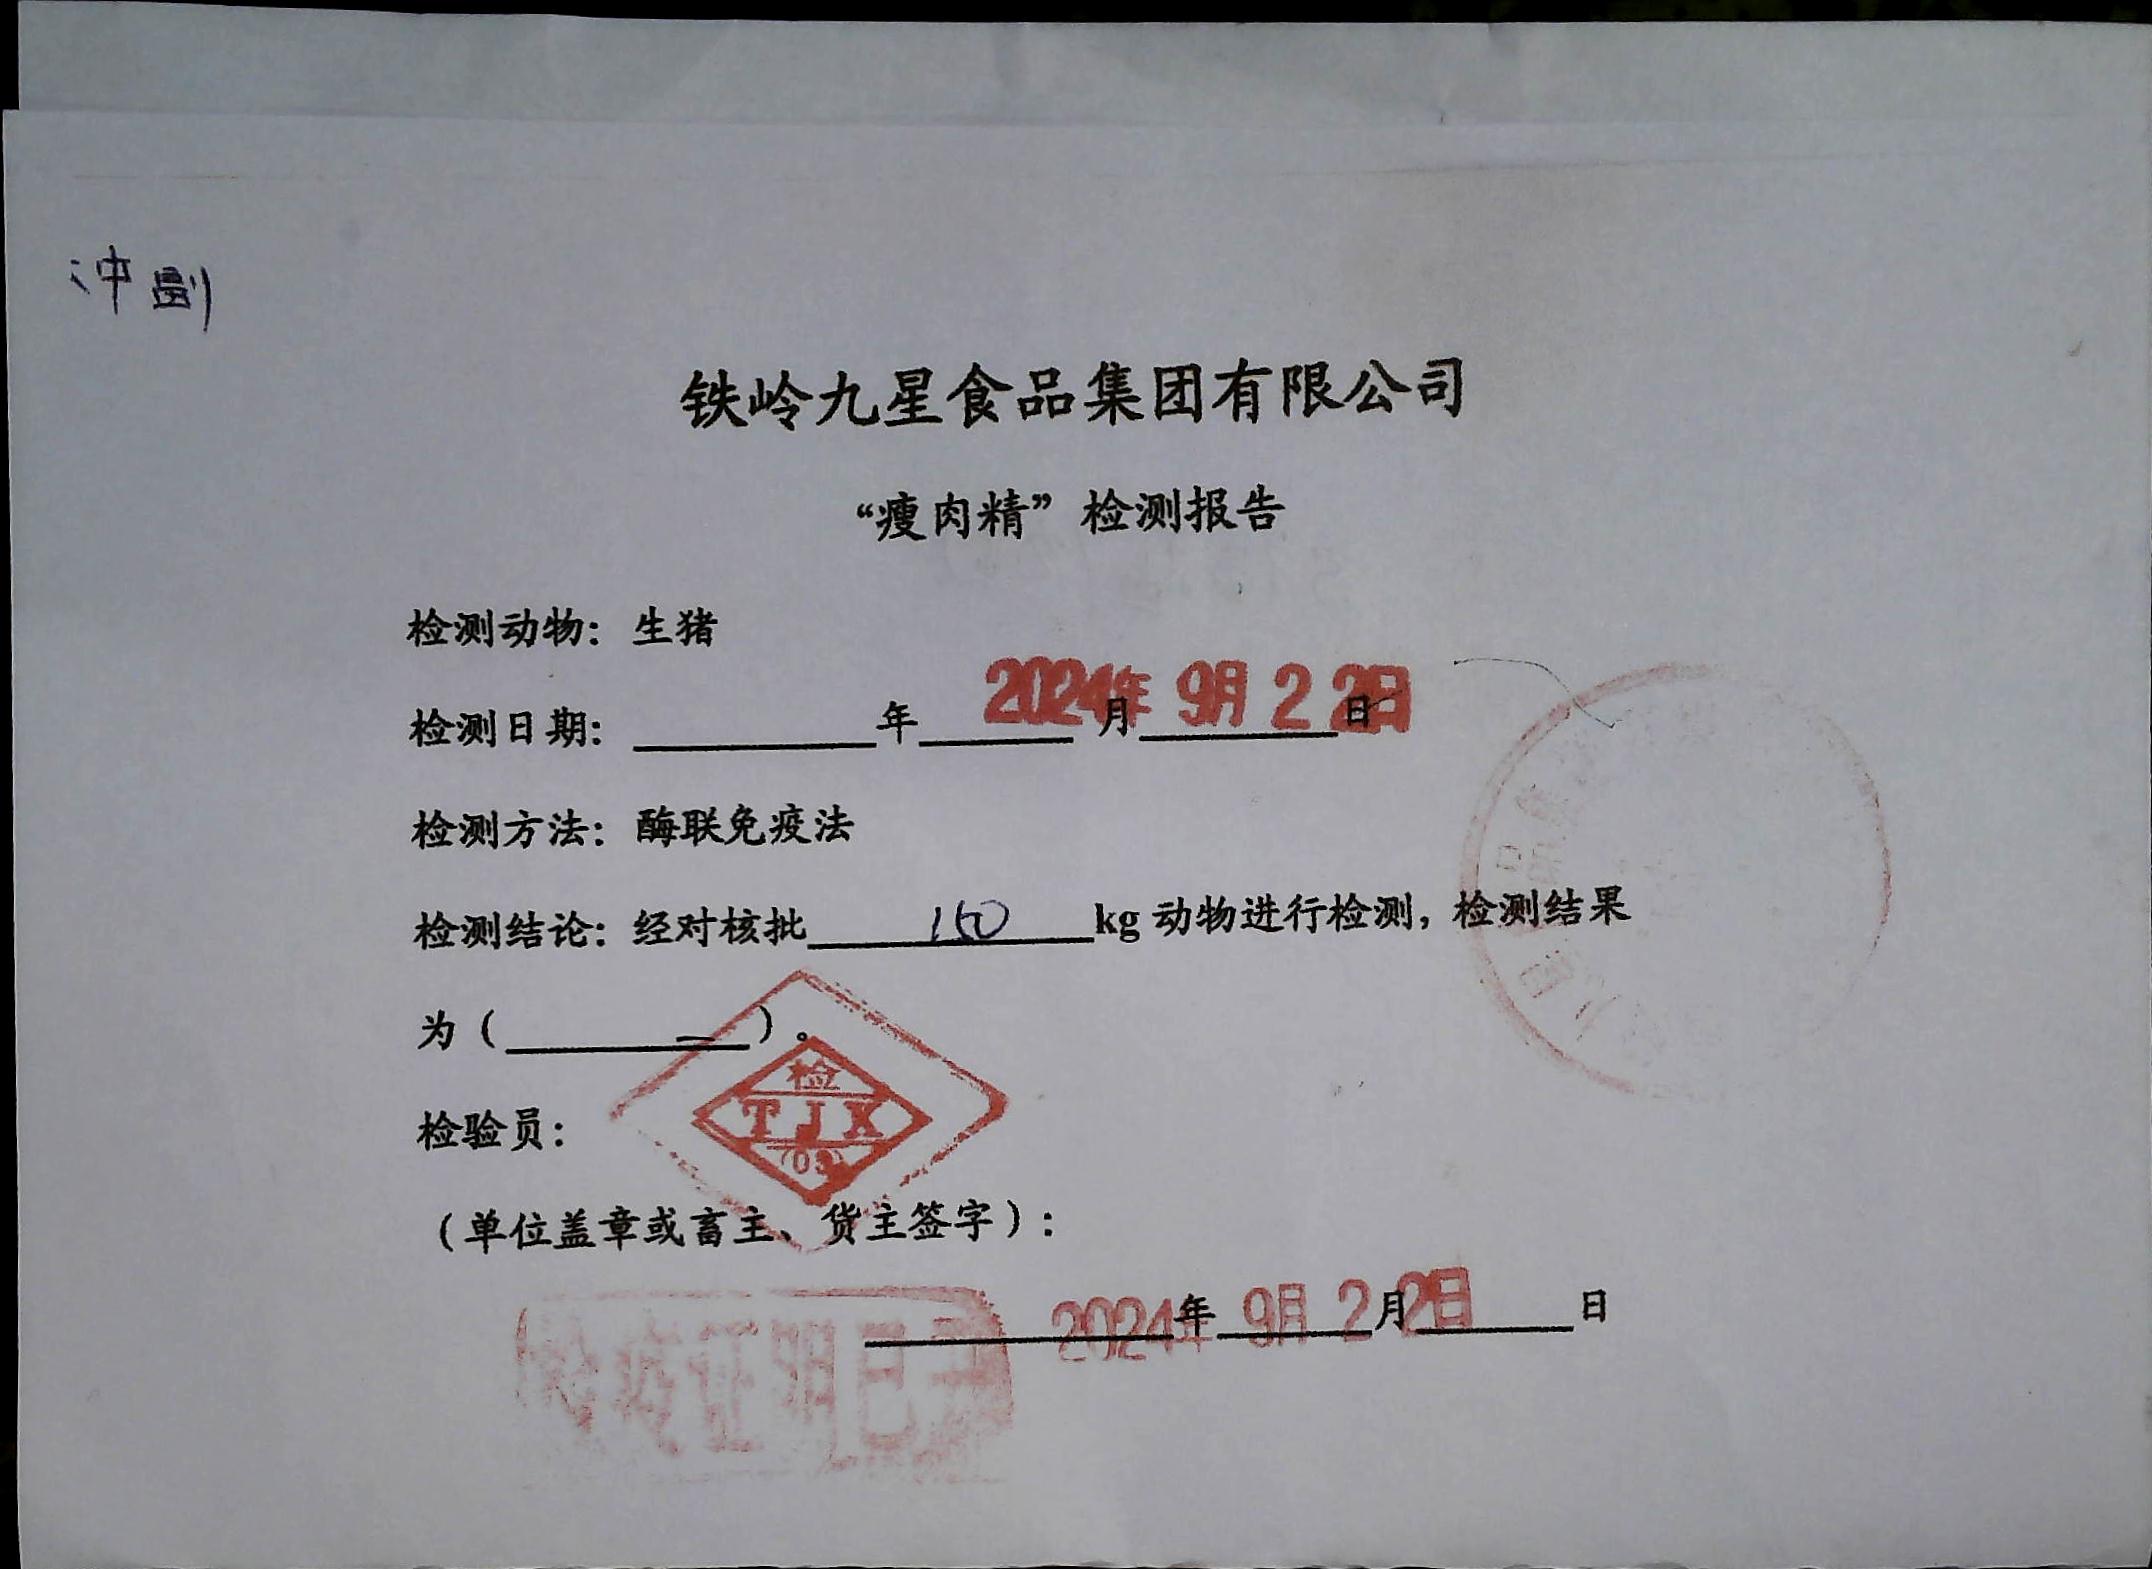 铁岭九星食品集团有限公司
“瘦肉精”检测报告
检测动物：生猪
检测日期：年月日
2024年9月22日
检测方法：酶联免疫法
检测结论：经对核批150kg动物进行检测，检测结果
为（一）。
检验员：
检
TJX
(03)
（单位盖章或畜主、货主签字）：
年月日
2024年9月22日